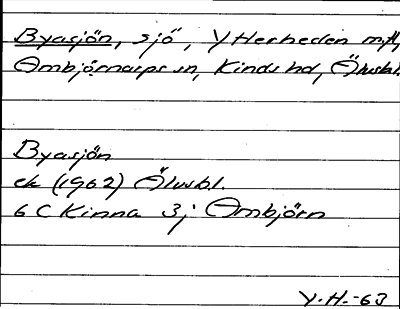 Byasjön, sjö, Y Herheden m fl,
Ömbjörnarps sn, Kinds hd, Älvsbl.
Byasjön
ek (1962) Älvsbl.
6 C Kinna 3j Ömbjörn
Y.H.-63